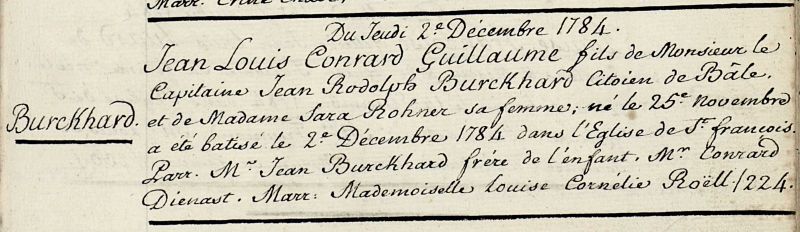 Du Jeudi 2.e Décembre 1784.
Jean Louis Conrard Guillaume fils de Monsieur le
Capitaine Jean Rodolph Burckhard Citoien de Bâle,
Burckhard.
et de Madame Sara Rohner sa femme; né le 25.e Novembre
a été batisé le 2.e Décembre 1784 dans l'Eglise de S.t françois.
Parr. M.r Jean Burckhard frére de l'enfant. M.r Conrard
Dienast. Marr: Mademoiselle Louise Cornélie Roëll./224.